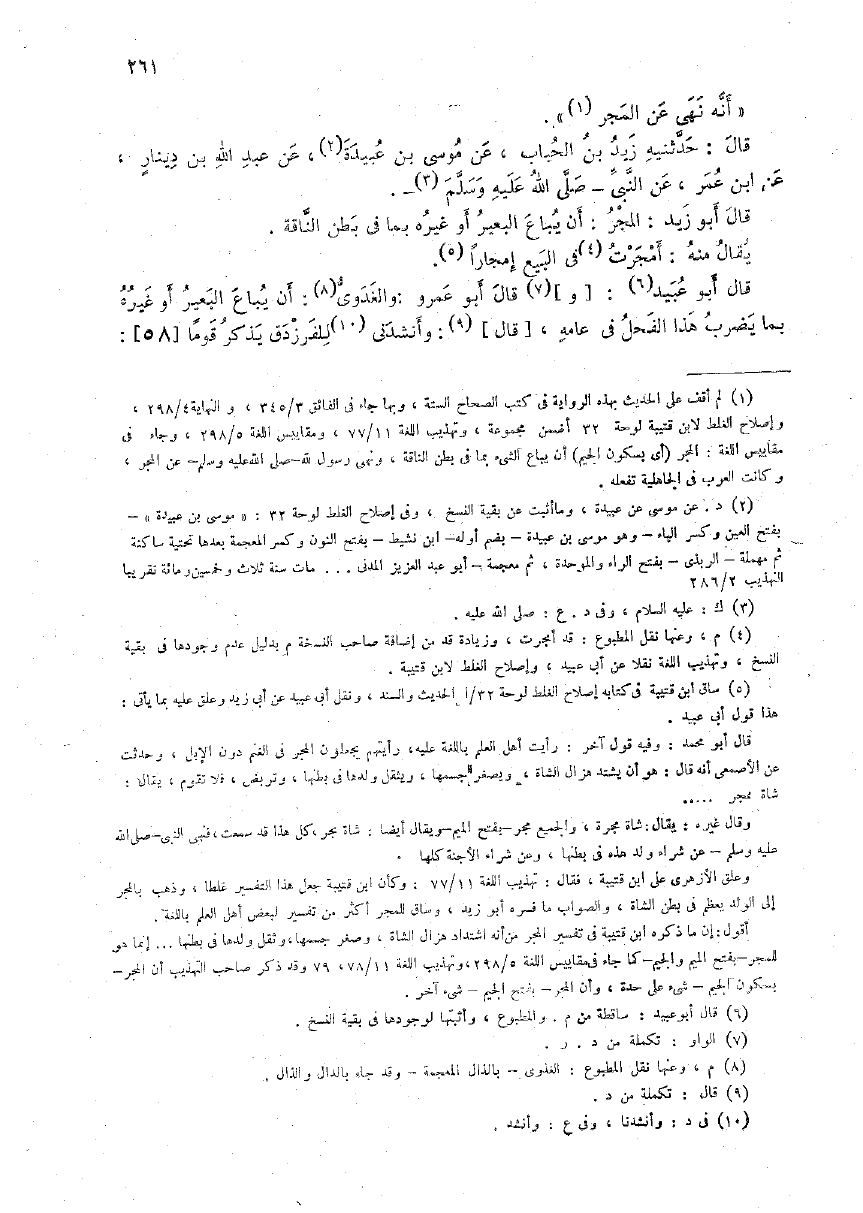 ٢٦١
« أَنَّه نَهَى عَن المَجر (١) » .
قالَ : حَدَّثنيهِ زَيدُ بنُ الحُباب ، عَن مُوسى بن عُبيدَةَ(٢) ، عَن عبدِ اللهِ بن دِينارٍ ،
عَن ابن عُمَر ، عَن النَّبيِّ – صَلَّى اللهُ عَلَيهِ وَسَلَّمَ (٣) – .
قالَ أَبو زَيد : المَجْرُ : أَن يُباعَ البعيرُ أَو غيرُه بما فى بَطن النَّاقة .
يُقالُ منهُ : أَمْجَرْتُ (٤) فى البَيع إمجاراً (٥) .
قال أَبو عُبَيد (٦) : [ و ] (٧) قالَ أَبو عَمرو : والغَدَوىُّ (٨) : أَن يُباعَ البَعيرُ أَو غَيرُهُ
بما يَضربُ هَذا الفَحلُ فى عامهِ ، [ قال ] (٩) : وأَنشدَنى (١٠) لِلفَرزدَق يَذكرُ قَومًا [٥٨] :
(١) لم أقف على الحديث بهذه الرواية فى كتب الصحاح الستة ، وبها جاء فى الفائق ٣٤٥/٣ ، و النهاية ٢٩٨/٤ ،
وإصلاح الغلط لابن قتيبة لوحة ٣٢ أضمن مجموعة ، وتهذيب اللغة ٧٧/١١ ، ومقاييس اللغة ٢٩٨/٥ ، وجاء فى
مقاييس اللغة : المجر (أى بسكون الجيم) أن يباع الشىء بما فى بطن الناقة ، ونهى رسول الله–صلى الله عليه وسلم– عن المجر ،
وكانت العرب فى الجاهلية تفعله .
(٢) د . عن موسى عن عبيدة ، وما أثبت عن بقية النسخ ، وفى إصلاح الغلط لوحة ٣٢ : « موسى بن عبيدة » –
بفتح العين وكسر الياء – وهو موسى بن عبيدة – بضم أوله– ابن نشيط – بفتح النون وكسر المعجمة بعدها تحتية ساكنة
ثم مهملة – الربذى – بفتح الراء والموحدة ، ثم معجمة – أبو عبد العزيز المدنى . . . مات سنة ثلاث وخمسين ومائة تقريبا
التهذيب ٢٨٦/٢
(٣) ك : عليه السلام ، وفى د . ع : صلى الله عليه .
(٤) م ، وعنها نقل المطبوع : قد أمجرت ، وزيادة قد من إضافة صاحب النسخة م بدليل عدم وجودها فى بقية
النسخ ، وتهذيب اللغة نقلا عن أبى عبيد ، وإصلاح الغلط لابن قتيبة .
(٥) ساق ابن قتيبة فى كتابه إصلاح الغلط لوحة ٣٢/أ الحديث والسند ، ونقل أبى عبيد عن أبى زيد وعلق عليه بما يأتى :
هذا قول أبى عبيد .
قال أبو محمد : وفيه قول آخر : رأيت أهل العلم باللغة عليه، رأيتهم يجعلون المجر فى الغنم دون الإبل ، وحدثت
عن الأصمعى أنه قال : هو أن يشتد هزال الشاة ، ويصغر جسمها ، ويثقل ولدها فى بطنها ، وتربض ، فلا تقوم ، يقال :
شاة ممجر .....
وقال غيره : يقال: شاة مجرة ، والجميع مجر–بفتح الميم–ويقال أيضا : شاة بجر، كل هذا قد سمعت، فنهى النبى–صلى الله
عليه وسلم – عن شراء ولد هذه فى بطنها ، وعن شراء الأجنة كلها .
وعلق الأزهرى على ابن قتيبة ، فقال : تهذيب اللغة ٧٧/١١ : وكأن ابن قتيبة جعل هذا التفسير غلطا ، وذهب بالمجر
إلى الولد يعظم فى بطن الشاة ، والصواب ما فسره أبو زيد ، وساق للمجر أكثر من تفسير لبعض أهل العلم باللغة .
أقول: إن ما ذكره ابن قتيبة فى تفسير المجر من أنه اشتداد هزال الشاة ، وصغر جسمها، وثقل ولدها فى بطنها ... إنما هو
للمجر–بفتح الميم والجيم–كما جاء فى مقاييس اللغة ٢٩٨/٥، وتهذيب اللغة ٧٨/١١، ٧٩ وقد ذكر صاحب التهذيب أن المجر–
بسكون الجيم – شىء على حدة ، وأن المجر – بفتح الجيم – شىء آخر .
(٦) قال أبو عبيد : ساقطة من م . والمطبوع ، وأثبتها لوجودها فى بقية النسخ .
(٧) الواو : تكملة من د . ر .
(٨) م ، وعنها نقل المطبوع : الغذوى – بالذال المعجمة – وقد جاء بالدال والذال .
(٩) قال : تكملة من د .
(١٠) فى د : وأنشدنا ، وفى ع : وأنشد .